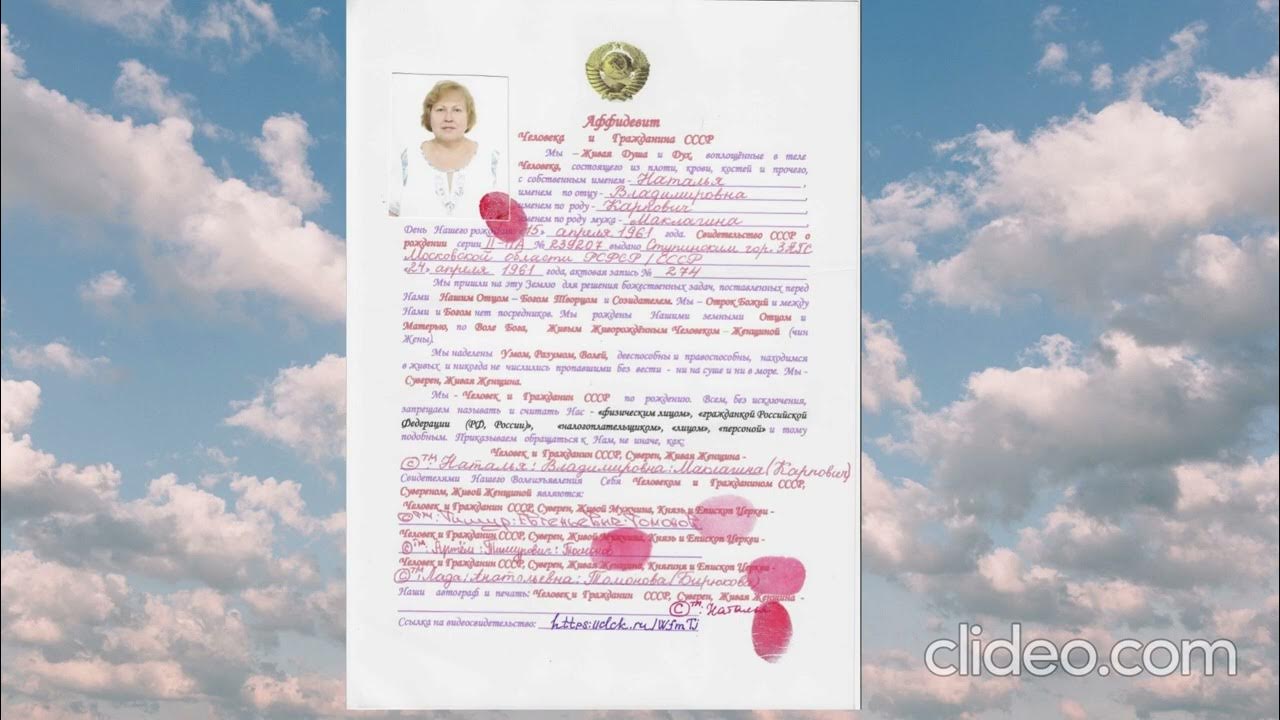 Аффидевит
Человека и Гражданина СССР
Мы – Живая Душа и Дух, воплощённые в теле
Человека, состоящего из плоти, крови, костей и прочего,
с собственным именем - Наталья,
именем по отцу - Владимировна,
именем по роду - Карпович,
именем по роду мужа - Маклагина
День Нашего рождения «15» апреля 1961 года. Свидетельство СССР о
рождении серии II-ПА № 239207 выдано Ступинским гор. ЗАГС
Московской области РСФСР / СССР
«24» апреля 1961 года, актовая запись № 274
Мы пришли на эту Землю для решения божественных задач, поставленных перед
Нами Нашим Отцом – Богом Творцом и Созидателем. Мы – Отрок Божий и между
Нами и Богом нет посредников. Мы рождены Нашими земными Отцом и
Матерью, по Воле Бога, Живым Живорождённым Человеком – Женщиной (чин
Жены).
Мы наделены Умом, Разумом, Волей, дееспособны и правоспособны, находимся
в живых и никогда не числились пропавшими без вести - ни на суше и ни в море. Мы -
Суверен, Живая Женщина.
Мы - Человек и Гражданин СССР по рождению. Всем, без исключения,
запрещаем называть и считать Нас - «физическим лицом», «гражданкой Российской
Федерации (РФ, России)», «налогоплательщиком», «лицом», «персоной» и тому
подобным. Приказываем обращаться к Нам, не иначе, как:
Человек и Гражданин СССР, Суверен, Живая Женщина -
©™: Наталья: Владимировна: Маклагина (Карпович)
Свидетелями Нашего Волеизъявления Себя Человеком и Гражданином СССР,
Сувереном, Живой Женщиной являются:
Человек и Гражданин СССР, Суверен, Живой Мужчина, Князь и Епископ Церкви -
©™: Тимур:
Человек и Гражданин СССР, Суверен, Живой Мужчина, Князь и Епископ Церкви -
©™: Артём: Тимурович:
Человек и Гражданин СССР, Суверен, Живая Женщина, Княгиня и Епископ Церкви -
©™: Лада: Анатольевна: Томонова (Бирюкова)
Наши автограф и печать: Человек и Гражданин СССР, Суверен, Живая Женщина -
©™: Наталья
Ссылка на видеосвидетельство: https://clck.ru/WfmTj
clideo.com